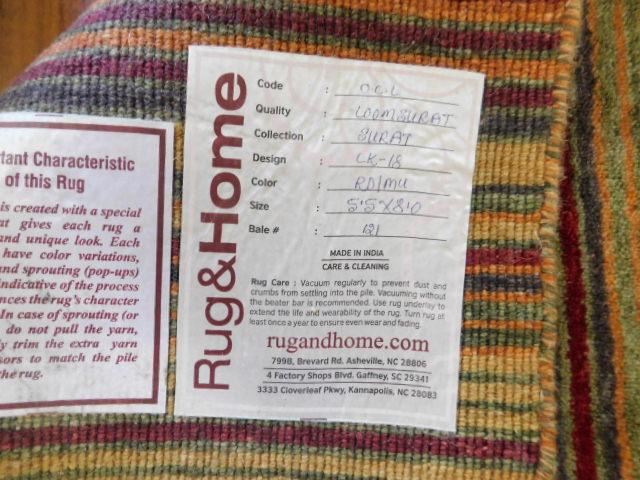 tant Characteristic
of this Rug
is created with a special
at gives each rug a
and unique look. Each
have color variations,
and sprouting (pop-ups)
indicative of the process
nces the rug's character
In case of sprouting (or
do not pull the yarn,
ly trim the extra yarn
sors to match the pile
the rug.
Rug&Home
Code : O.C.L
Quality : LOOMSURAT
Collection : SURAT
Design : LK-18
Color : RD/MU
Size : 5'5X8'0
Bale # : 121
MADE IN INDIA
CARE & CLEANING
Rug Care : Vacuum regularly to prevent dust and
crumbs from settling into the pile. Vacuuming without
the beater bar is recommended. Use rug underlay to
extend the life and wearability of the rug. Turn rug at
least once a year to ensure even wear and fading.
rugandhome.com
799B, Brevard Rd. Asheville, NC 28806
4 Factory Shops Blvd. Gaffney, SC 29341
3333 Cloverleaf Pkwy, Kannapolis, NC 28083